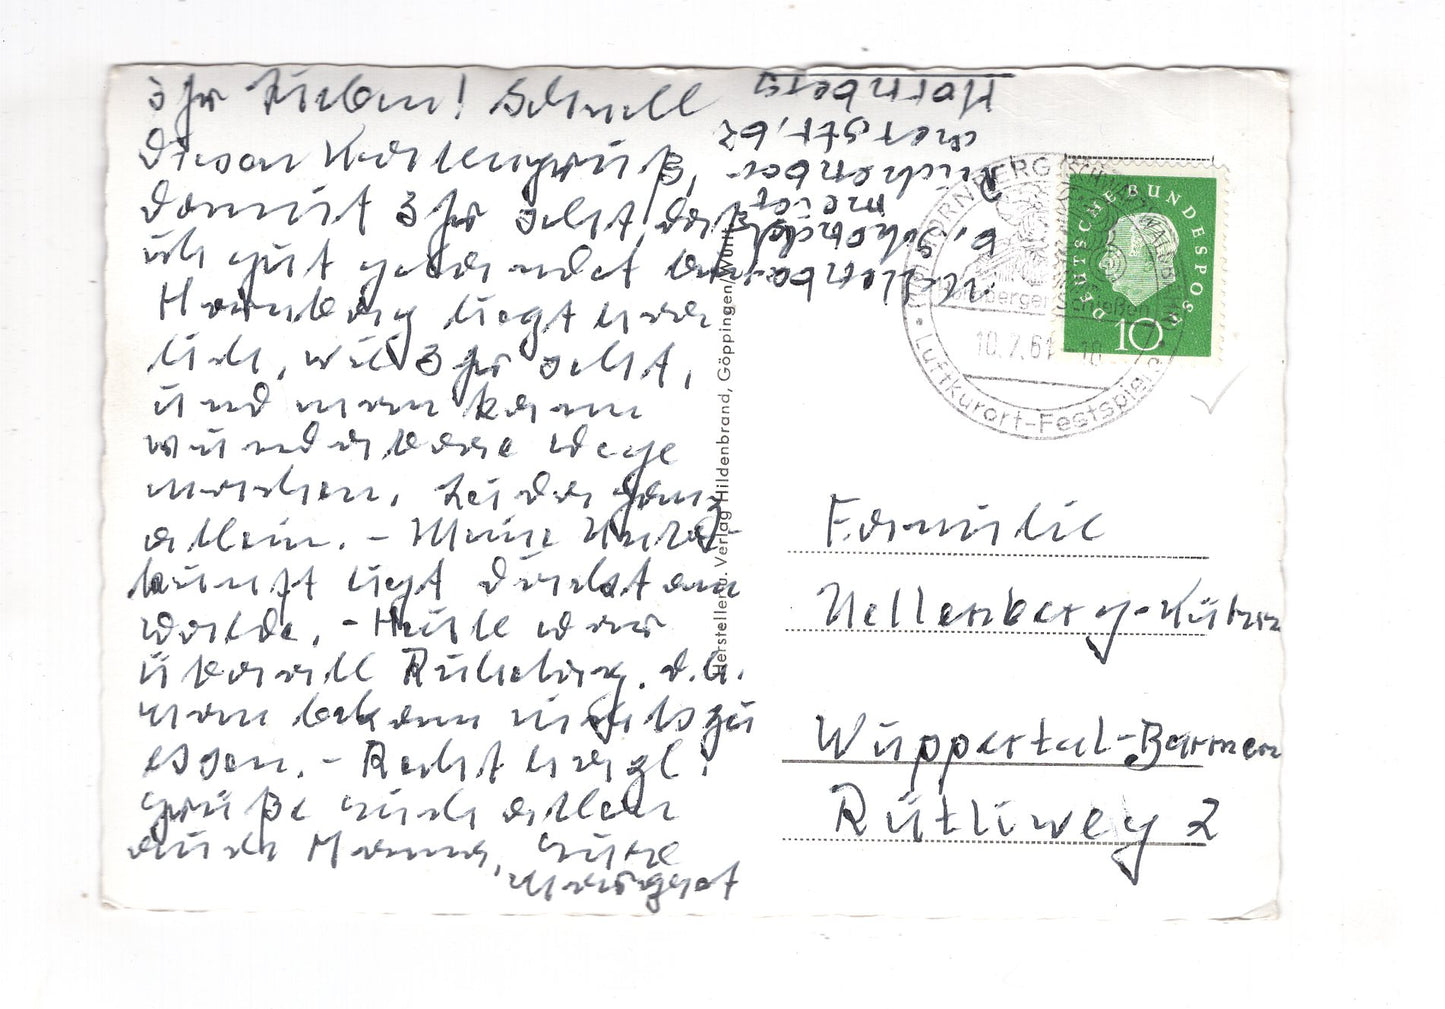 Ihr Lieben! Schnell
diesen Kartengruß,
damit Ihr seht, daß
ich gut gelandet bin.
Hornberg liegt herr-
lich, wie Ihr seht,
und man kann
wunderbare Wege
machen. Leider ganz
allein. - Meine Unter-
kunft liegt direkt am
Walde. - Heute war
überall Ruhetag, d.h.
man bekam nichts zu
essen. - Recht herzl.
Grüße Euch allen
auch Mama, Eure
Margret
N. Nellenberg
b. Schondel-
meier
Reichenba-
cherstr. 62
Hornberg
Hersteller u. Verlag Hildenbrand, Göppingen/Württ.
HORNBERG (SCHWARZWALDBAHN)
Hornberger Schießen
10.7.61 - 18
Luftkurort - Festspiele
DEUTSCHE BUNDESPOST
10
Familie
Nellenberg-Kühn
Wuppertal-Barmen
Rütliweg 2